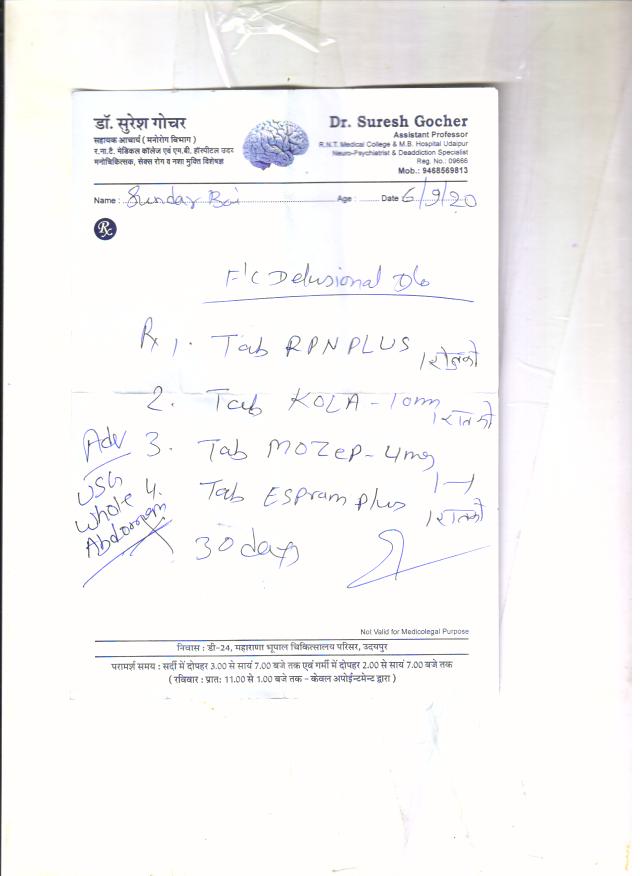 डॉ. सुरेश गोचर
सहायक आचार्य ( मनोरोग विभाग )
र.ना.टै. मेडिकल कॉलेज एवं एम.बी. हॉस्पीटल उदर
मनोचिकित्सक, सेक्स रोग व नशा मुक्ति विशेषज्ञ
Dr. Suresh Gocher
Assistant Professor
R.N.T. Medical College & M.B. Hospital Udaipur
Neuro-Psychiatrist & Deaddiction Specialist
Reg. No.: 09666
Mob.: 9468569813
Name : Sundar Bai Age : Date 6/9/20
Rx
F/C Delusional D/o
Rx 1. Tab RPN PLUS
2. Tab KOLA - 10mg 1 रात को
3. Tab MOZeP - 4mg
1-1
4. Tab ESPram Plus 1 रात को
Adv
USG
Whole
Abdomen
30 days
Not Valid for Medicolegal Purpose
निवास : डी-24, महाराणा भूपाल चिकित्सालय परिसर, उदयपुर
परामर्श समय : सर्दी में दोपहर 3.00 से सायं 7.00 बजे तक एवं गर्मी में दोपहर 2.00 से सायं 7.00 बजे तक
( रविवार : प्रात: 11.00 से 1.00 बजे तक - केवल अपोईन्टमेन्ट द्वारा )